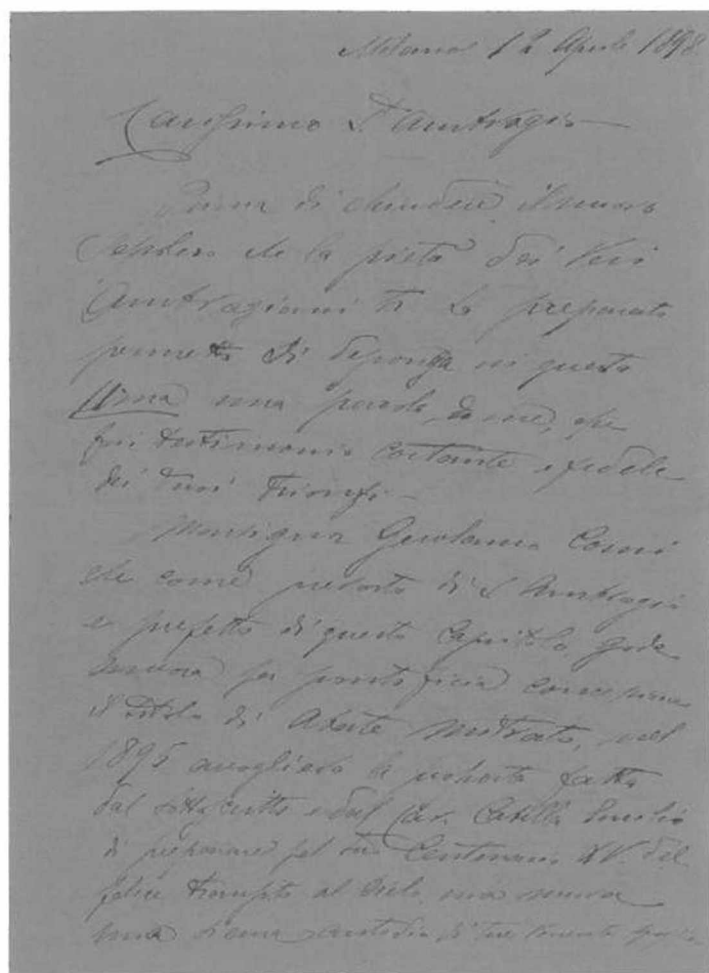 Milano 12 Aprile 1898
Carissimo S. Ambrogio
Prima di chiudere il nuovo
che la pietà dei veri
Ambrogiani ti ha preparato
permetti di deponga in questa
Urna una parola, che
fui testimonio costante e fedele
dei tuoi trionfi -
Monsignor Gerolamo Comi
che come prevosto di S. Ambrogio
e prefetto di questo Capitolo, gode
ancora per pontificia concessione
il titolo di Abate Mitrato, nel
1895 accogliendo la proposta fatta
dal sottoscritto e dal Cav. Catella Emilio
di preparare pel tuo Centenario XV del
felice transito al Cielo una nuova
una custodia di tue